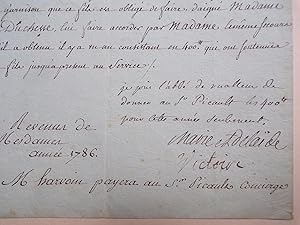 garnison que ce fils est obligé de faire. daigné Madame
Duchesne lui faire accorder par Madame le même Secours
il a obtenu il y a un an consistant en 400# qui ont soutenu
fils jusqu'a present au Service /.
je prie l'abbé de
donner au Sr Picault les 400#
pour cette année seulement.
Revenus de
Mesdames
année 1786.
Marie Adelaide
Victoire
M harvoin payera au Sr Picault Concierge